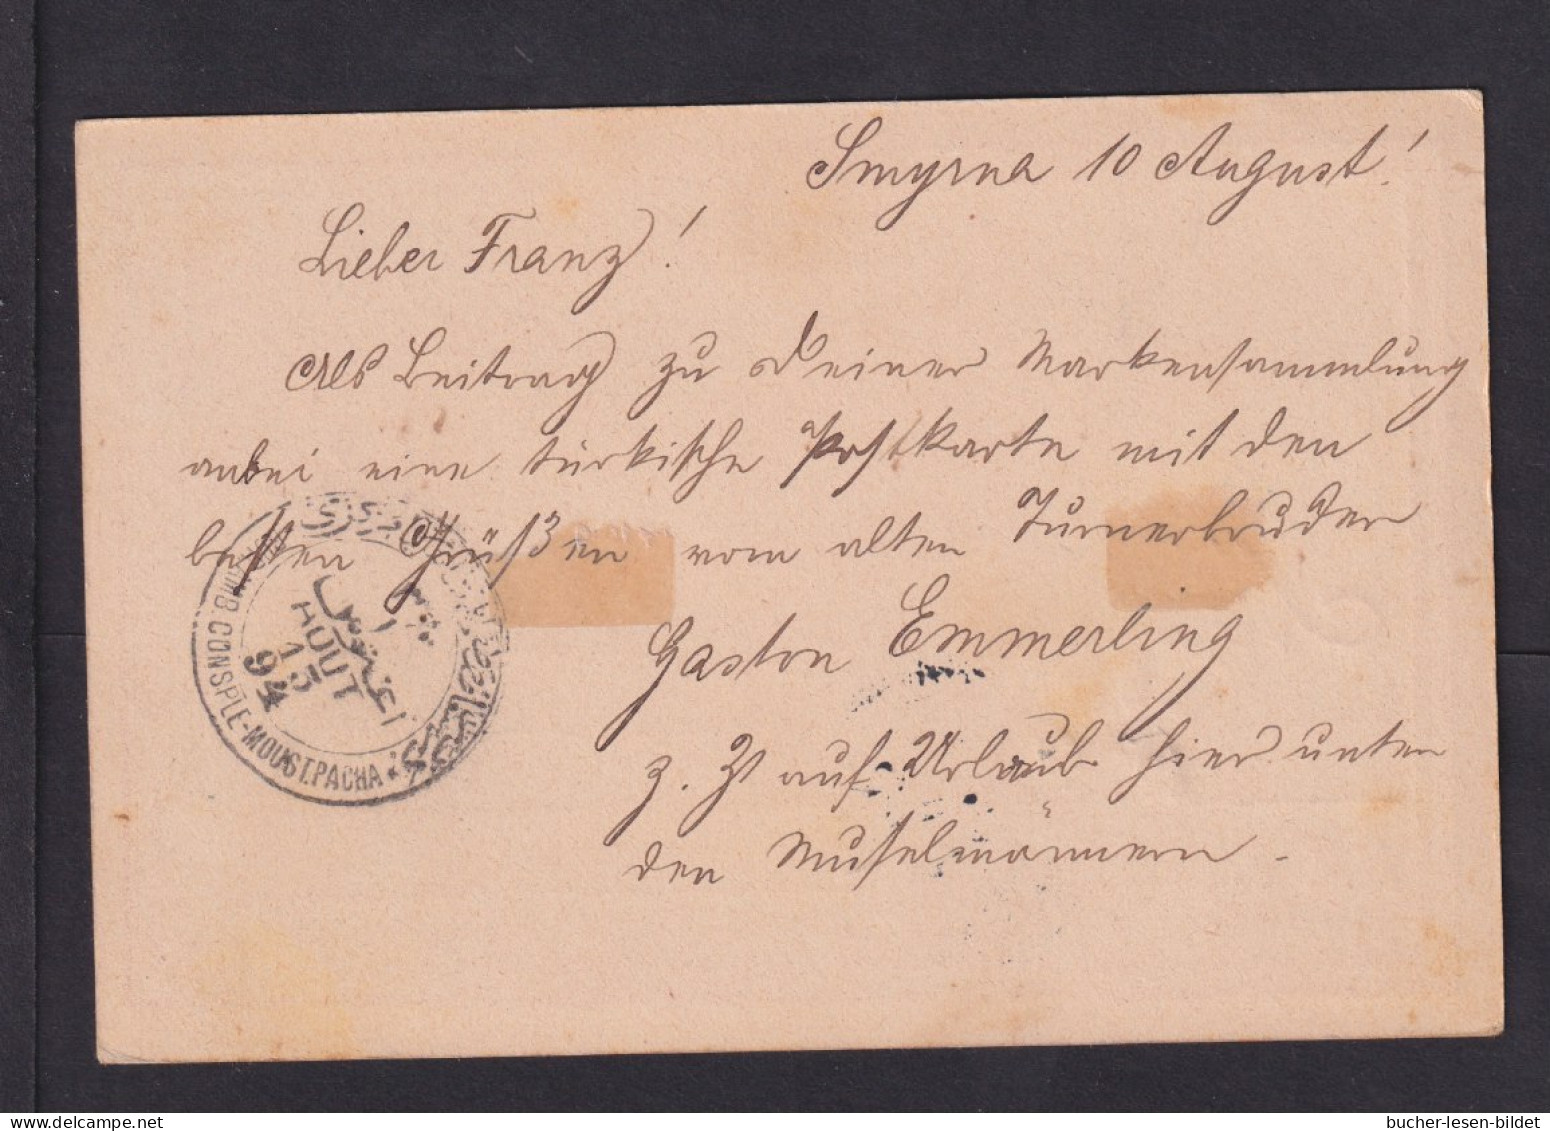 Smyrna 10 August!
Lieber Franz!
Als Beitrag zu Deiner Markensammlung
anbei eine türkische Postkarte mit den
besten Grüßen vom alten Turnerbruder
Gaston Emmerling
z. Zt auf Urlaub hier unten
den Muselmännern.
AMB. CONSPLE-MOUST.PACHA
AOUT
15
94
bucher-lesen-bildet